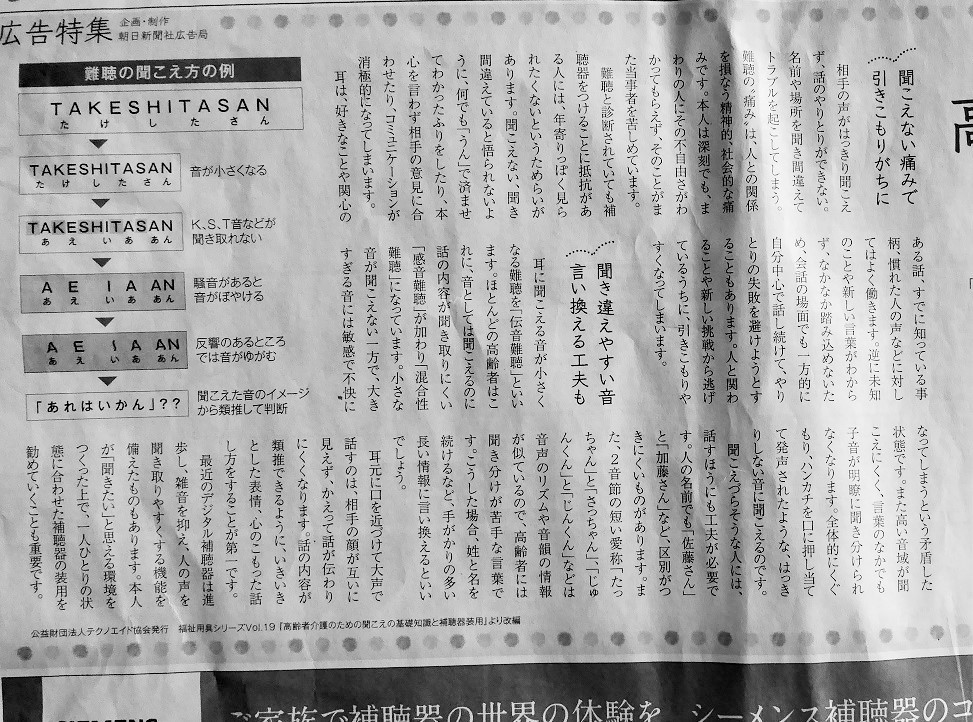 広告特集
企画・制作
朝日新聞社広告局
聞こえない痛みで
引きこもりがちに
相手の声がはっきり聞こえ
ず、話のやりとりができない。
名前や場所を聞き間違えて
トラブルを起こしてしまう。
難聴の〝痛み〟は、人との関係
を損なう精神的、社会的な痛
みです。本人は深刻でも、ま
わりの人にその不自由さがわ
かってもらえず、そのことがま
た当事者を苦しめています。
難聴と診断されていても補
聴器をつけることに抵抗があ
る人には、年寄りっぽく見ら
れたくないというためらいが
あります。聞こえない、聞き
間違えていると悟られないよ
うに、何でも「うん」で済ませ
てわかったふりをしたり、本
心を言わず相手の意見に合
わせたり、コミュニケーションが
消極的になってしまいます。
耳は、好きなことや関心の
ある話、すでに知っている事
柄、慣れた人の声などに対し
てはよく働きます。逆に未知
のことや新しい言葉がわから
ず、なかなか踏み込めないた
め、会話の場面でも一方的に
自分中心で話し続けて、やり
とりの失敗を避けようとす
ることもあります。人と関わ
ることや新しい挑戦から逃げ
ているうちに、引きこもりや
すくなってしまいます。
聞き違えやすい音
言い換える工夫も
耳に聞こえる音が小さく
なる難聴を「伝音難聴」といい
ます。ほとんどの高齢者はこ
れに、音としては聞こえるのに
話の内容が聞き取りにくい
「感音難聴」が加わり「混合性
難聴」になっています。小さな
音が聞こえない一方で、大き
すぎる音には敏感で不快に
なってしまうという矛盾した
状態です。また高い音域が聞
こえにくく、言葉のなかでも
子音が明瞭に聞き分けられ
なくなります。全体的にくぐ
もり、ハンカチを口に押し当て
て発声されたような、はっき
りしない音に聞こえるのです。
聞こえづらそうな人には、
話すほうにも工夫が必要で
す。人の名前でも「佐藤さん」
と「加藤さん」など、区別がつ
きにくいものがあります。ま
た、2音節の短い愛称「たっ
ちゃん」と「さっちゃん」、「じゅ
んくん」と「じんくん」などは
音声のリズムや音韻の情報
が似ているので、高齢者には
聞き分けが苦手な言葉で
す。こうした場合、姓と名を
続けるなど、手がかりの多い
長い情報に言い換えるといい
でしょう。
耳元に口を近づけて大声で
話すのは、相手の顔が互いに
見えず、かえって話が伝わり
にくくなります。話の内容が
類推できるように、いきいき
とした表情、心のこもった話
し方をすることが第一です。
最近のデジタル補聴器は進
歩し、雑音を抑え、人の声を
聞き取りやすくする機能を
備えたものもあります。本人
が「聞きたい」と思える環境を
つくった上で、一人ひとりの状
態に合わせた補聴器の装用を
勧めていくことも重要です。
難聴の聞こえ方の例
TAKESHITASAN
たけしたさん
TAKESHITASAN
たけしたさん
音が小さくなる
TAKESHITASAN
あえいああん
K、S、T音などが
聞き取れない
A E I A AN
あえいああん
騒音があると
音がぼやける
A E I A AN
あえいああん
反響のあるところ
では音がゆがむ
「あれはいかん」??
聞こえた音のイメージ
から類推して判断
公益財団法人テクノエイド協会発行 福祉用具シリーズVol.19『高齢者介護のための聞こえの基礎知識と補聴器装用』より改編
ご家族で補聴器の世界の体験を
シーメンス補聴器の
SIEMENS